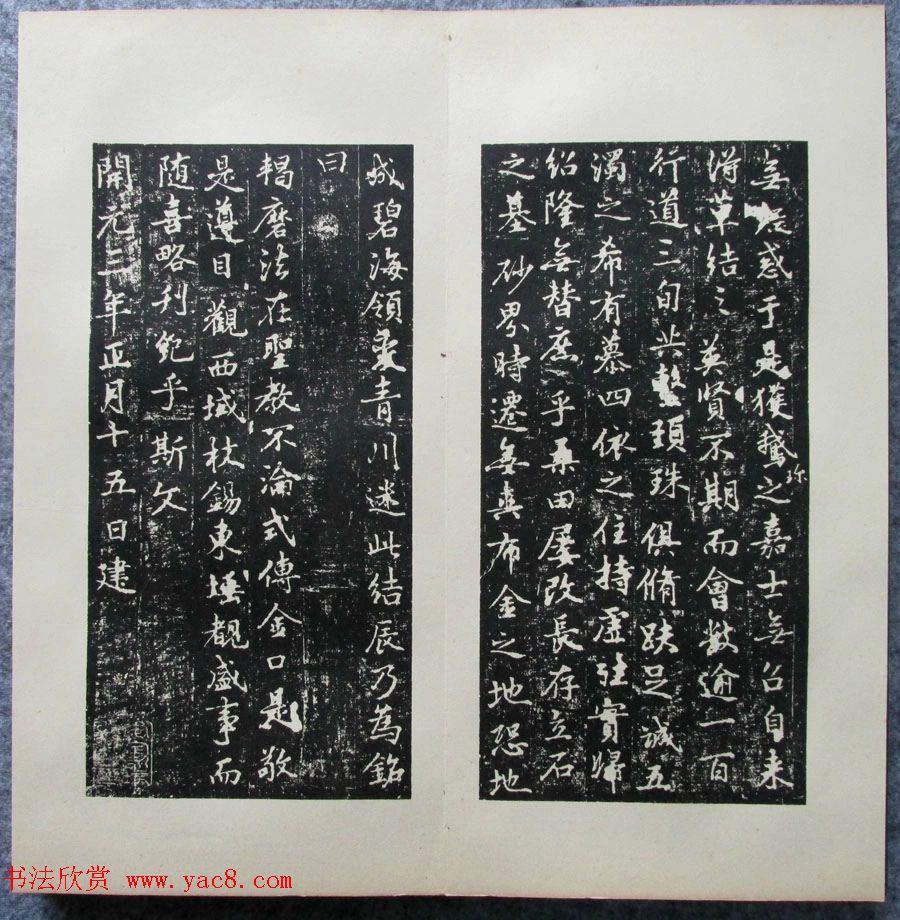 無惑于是獲鵝珎之嘉士無召自来
得草結之英賢不期而會数逾一百
行道三旬共繫頸珠俱脩趺足誠五
濁之希有慕四依之住持虚往實歸
紹隆無替庶乎桑田屢改長存立石
之基砂界時遷無異布金之地恐地
成碧海領變青川迷此結辰乃為銘
曰
羯磨法在聖教不淪式傳金口是敬
是遵目觀西域杖錫東垂覩盛事而
随喜略刊範乎斯文
開元三年正月十五日建
书法欣赏 www.yac8.com